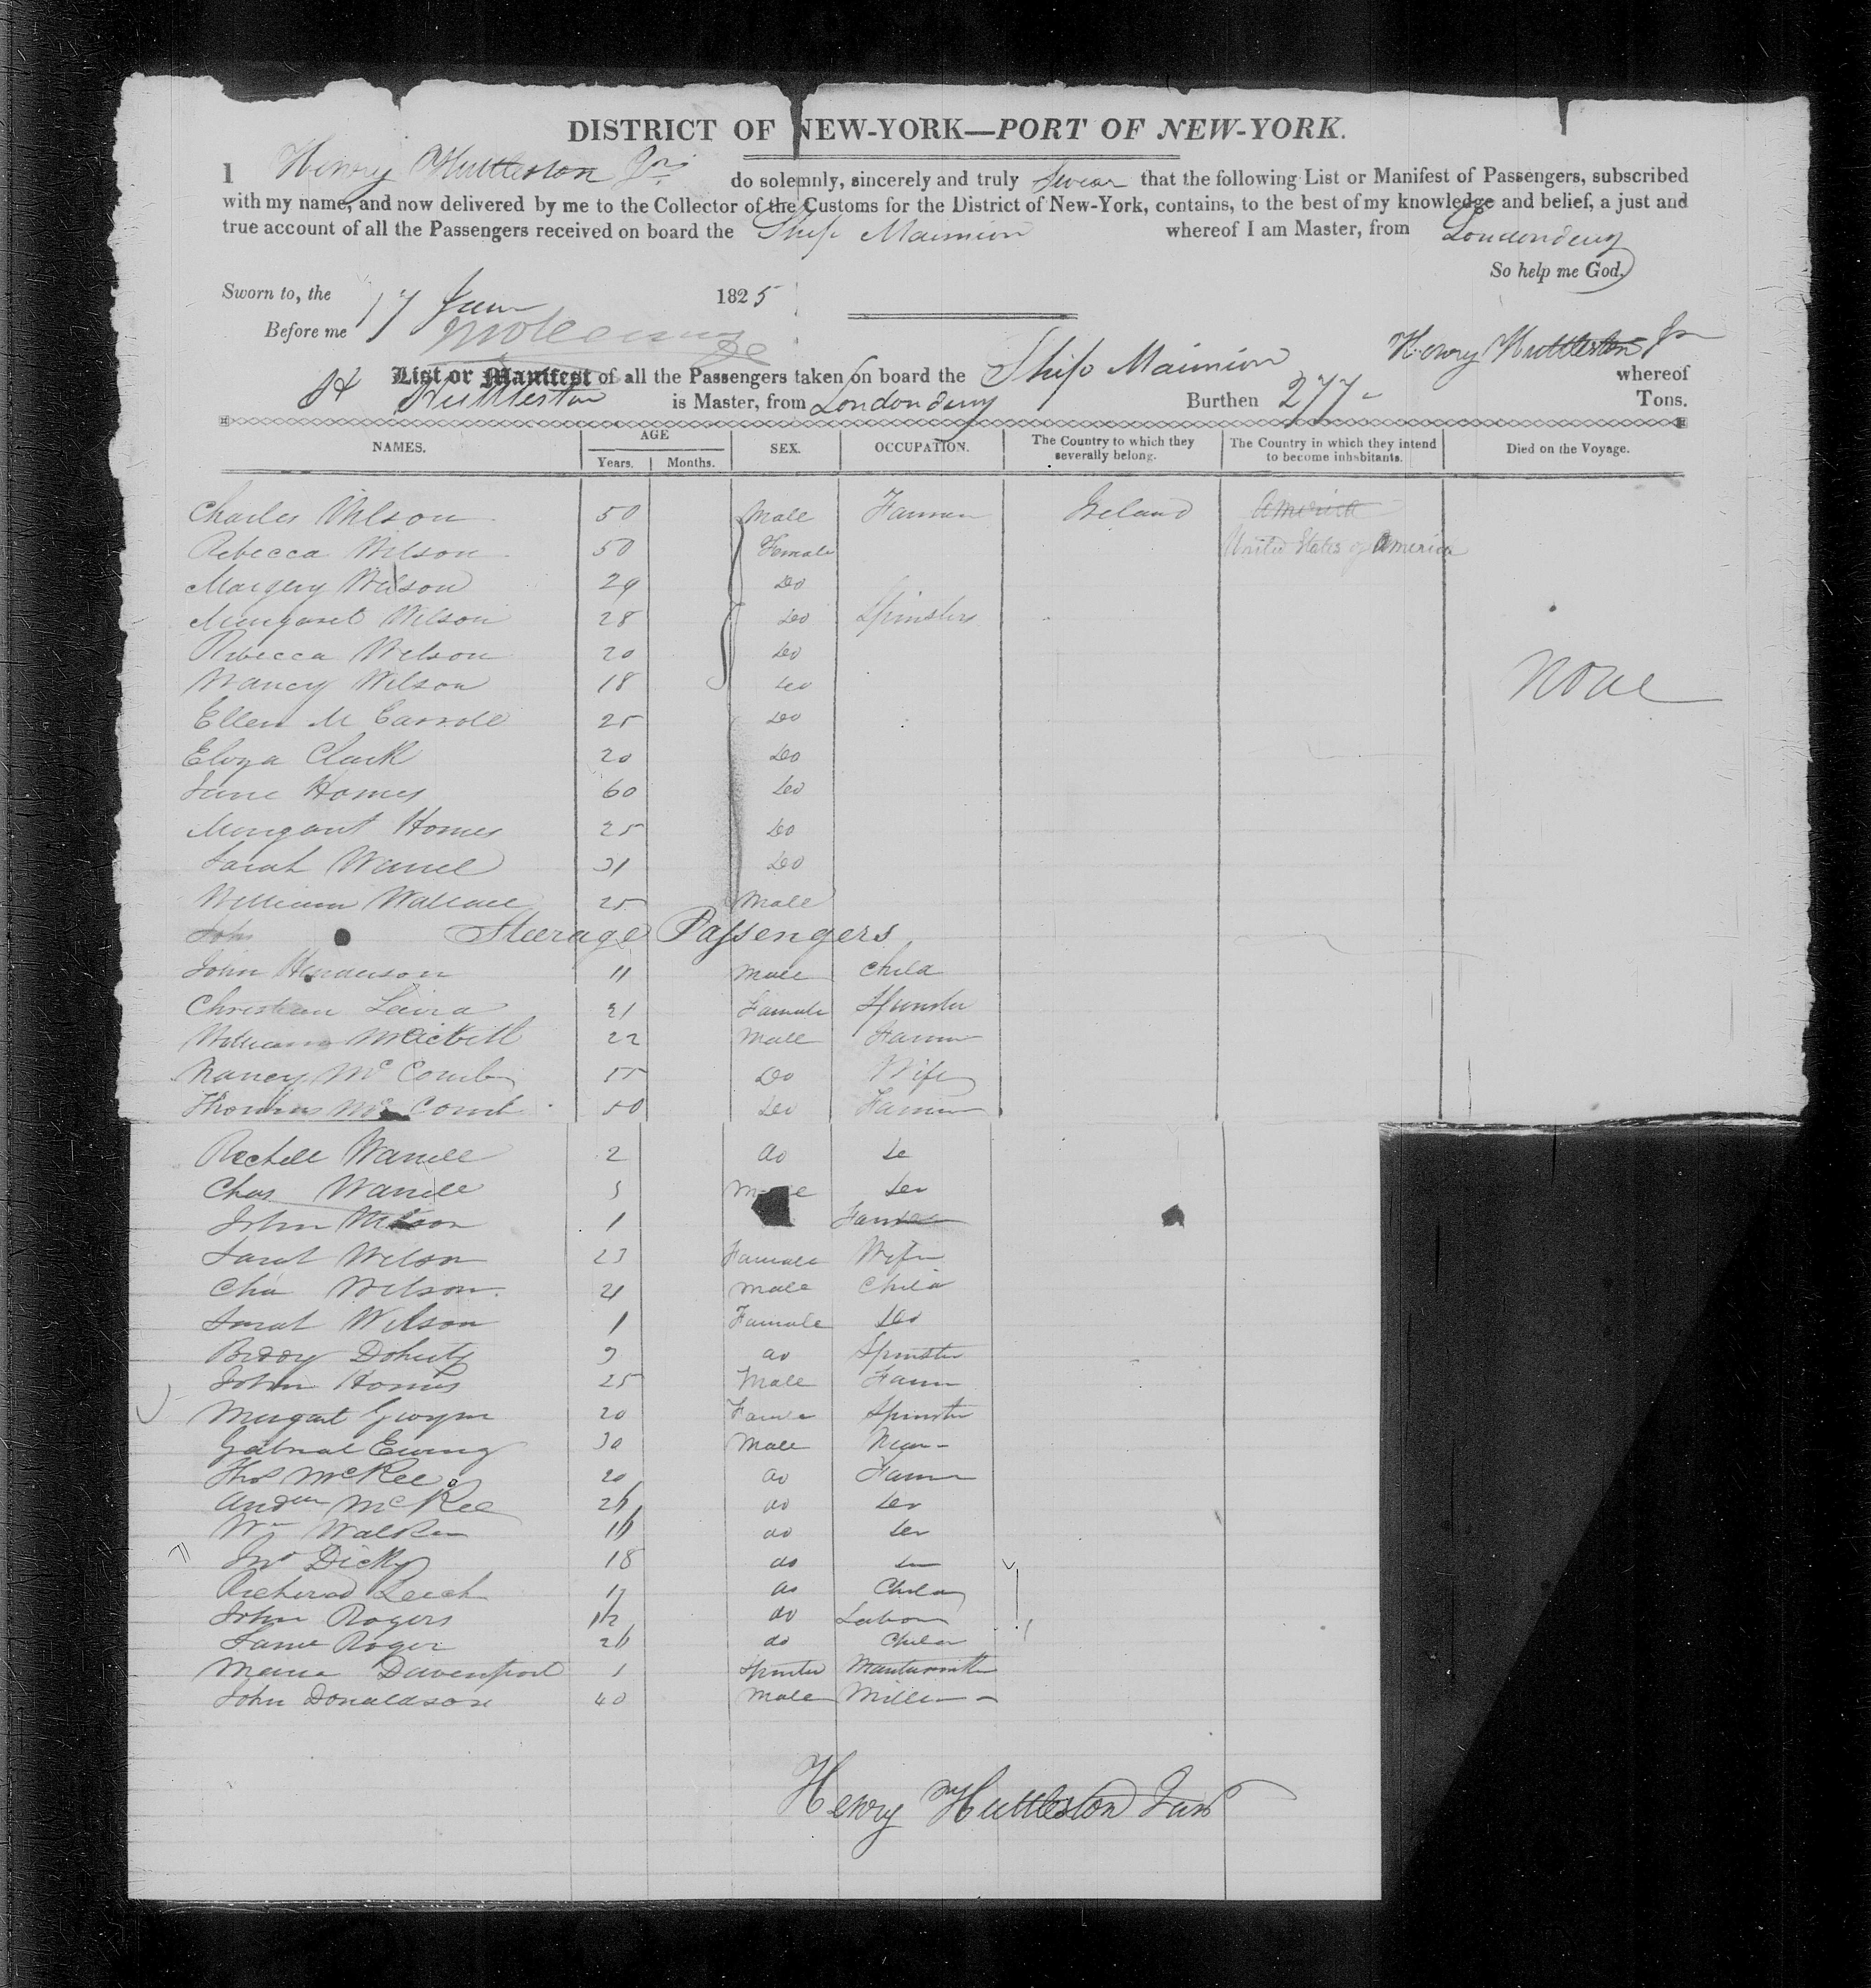 DISTRICT OF NEW-YORK—PORT OF NEW-YORK.
I Henry Huttleston Jnr do solemnly, sincerely and truly Swear that the following List or Manifest of Passengers, subscribed
with my name, and now delivered by me to the Collector of the Customs for the District of New-York, contains, to the best of my knowledge and belief, a just and
true account of all the Passengers received on board the Ship whereof I am Master, from Londonderry
So help me God.
Sworn to, the 17 June 1825
Before me
Henry Huttleston Jr
List or Manifest of all the Passengers taken on board the Ship whereof
H Huttleston is Master, from Londonderry Burthen 277 Tons.
NAMES. AGE SEX. OCCUPATION. The Country to which they severally belong. The Country in which they intend to become inhabitants. Died on the Voyage.
Years. Months.
Charles Wilson 50 Male Farmer Ireland America
Rebecca Wilson 50 Female United States of America
Margery Wilson 29 Do
Margaret Wilson 28 Do Spinsters
Rebecca Wilson 20 Do
Nancy Wilson 18 Do None
Ellen M Carroll 25 Do
Eloza Clark 20 Do
Jane Homes 60 Do
Margaret Homes 25 Do
Sarah 31 Do
William Wallace 25 Male
John
Steerage Passengers
John Henderson 11 Male Child
Christian 21 Female Spinster
William 22 Male Farmer
Nancy Mc Comb 55 Do Wife
Thomas Mc Comb 50 Do Farmer
2 do
Chas Male Do
John Wilson 1 Farmer
Sarah Wilson 23 Female Wife
Cha Wilson Male Child
Sarah Wilson 1 Female Do
Biddy Doherty do Spinster
John Homes 25 Male Farmer
Margart Gwynn 20 Female Spinster
Gabrial Ewing 30 Male
Thos McKee 20 do Farmer
Andew McKee do Do
Wm Walker do Do
Jno Dicky 18 do Do
Richerad Leech do Child
John Rogers do Labour
Roger do Child
Davenport Spinster
John Donaldson 40 Male Miller
Henry Huttleston Junr